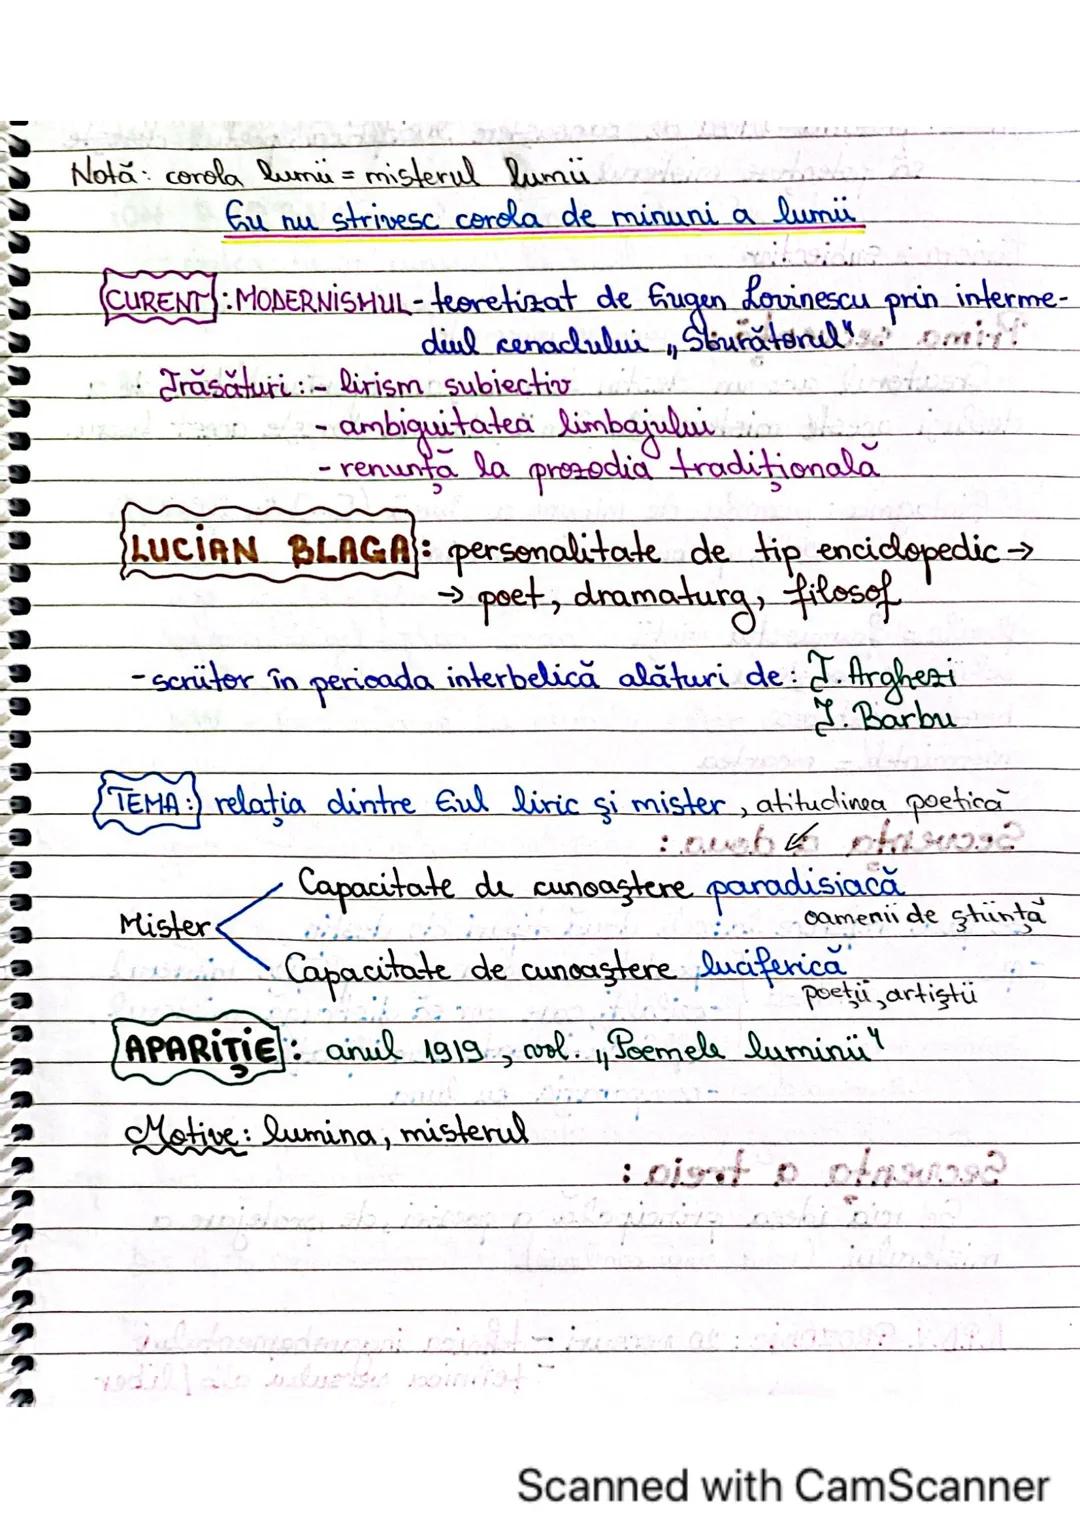 Notă: corola lumii = misterul lumii
Eu nu strivesc corola de minuni a lumii
CURENT: MODERNISMUL - teoretizat de Eugen Lovinescu prin interme-
diul cenaclului „Sburătorul"
Trăsături: - lirism subiectiv
- ambiguitatea limbajului
- renunță la prozodia tradițională
LUCIAN BLAGA: personalitate de tip enciclopedic →
→ poet, dramaturg, filosof
- scriitor în perioada interbelică alături de: T. Arghezi
I. Barbu
TEMA: relația dintre Eul liric și mister, atitudinea poetică
Capacitate de cunoaștere paradisiacă
oamenii de știință
Mister
Capacitate de cunoaștere luciferică
poeții, artiștii
APARIȚIE: anul 1919, vol. „Poemele luminii"
Motive: lumina, misterul
Scanned with CamScanner